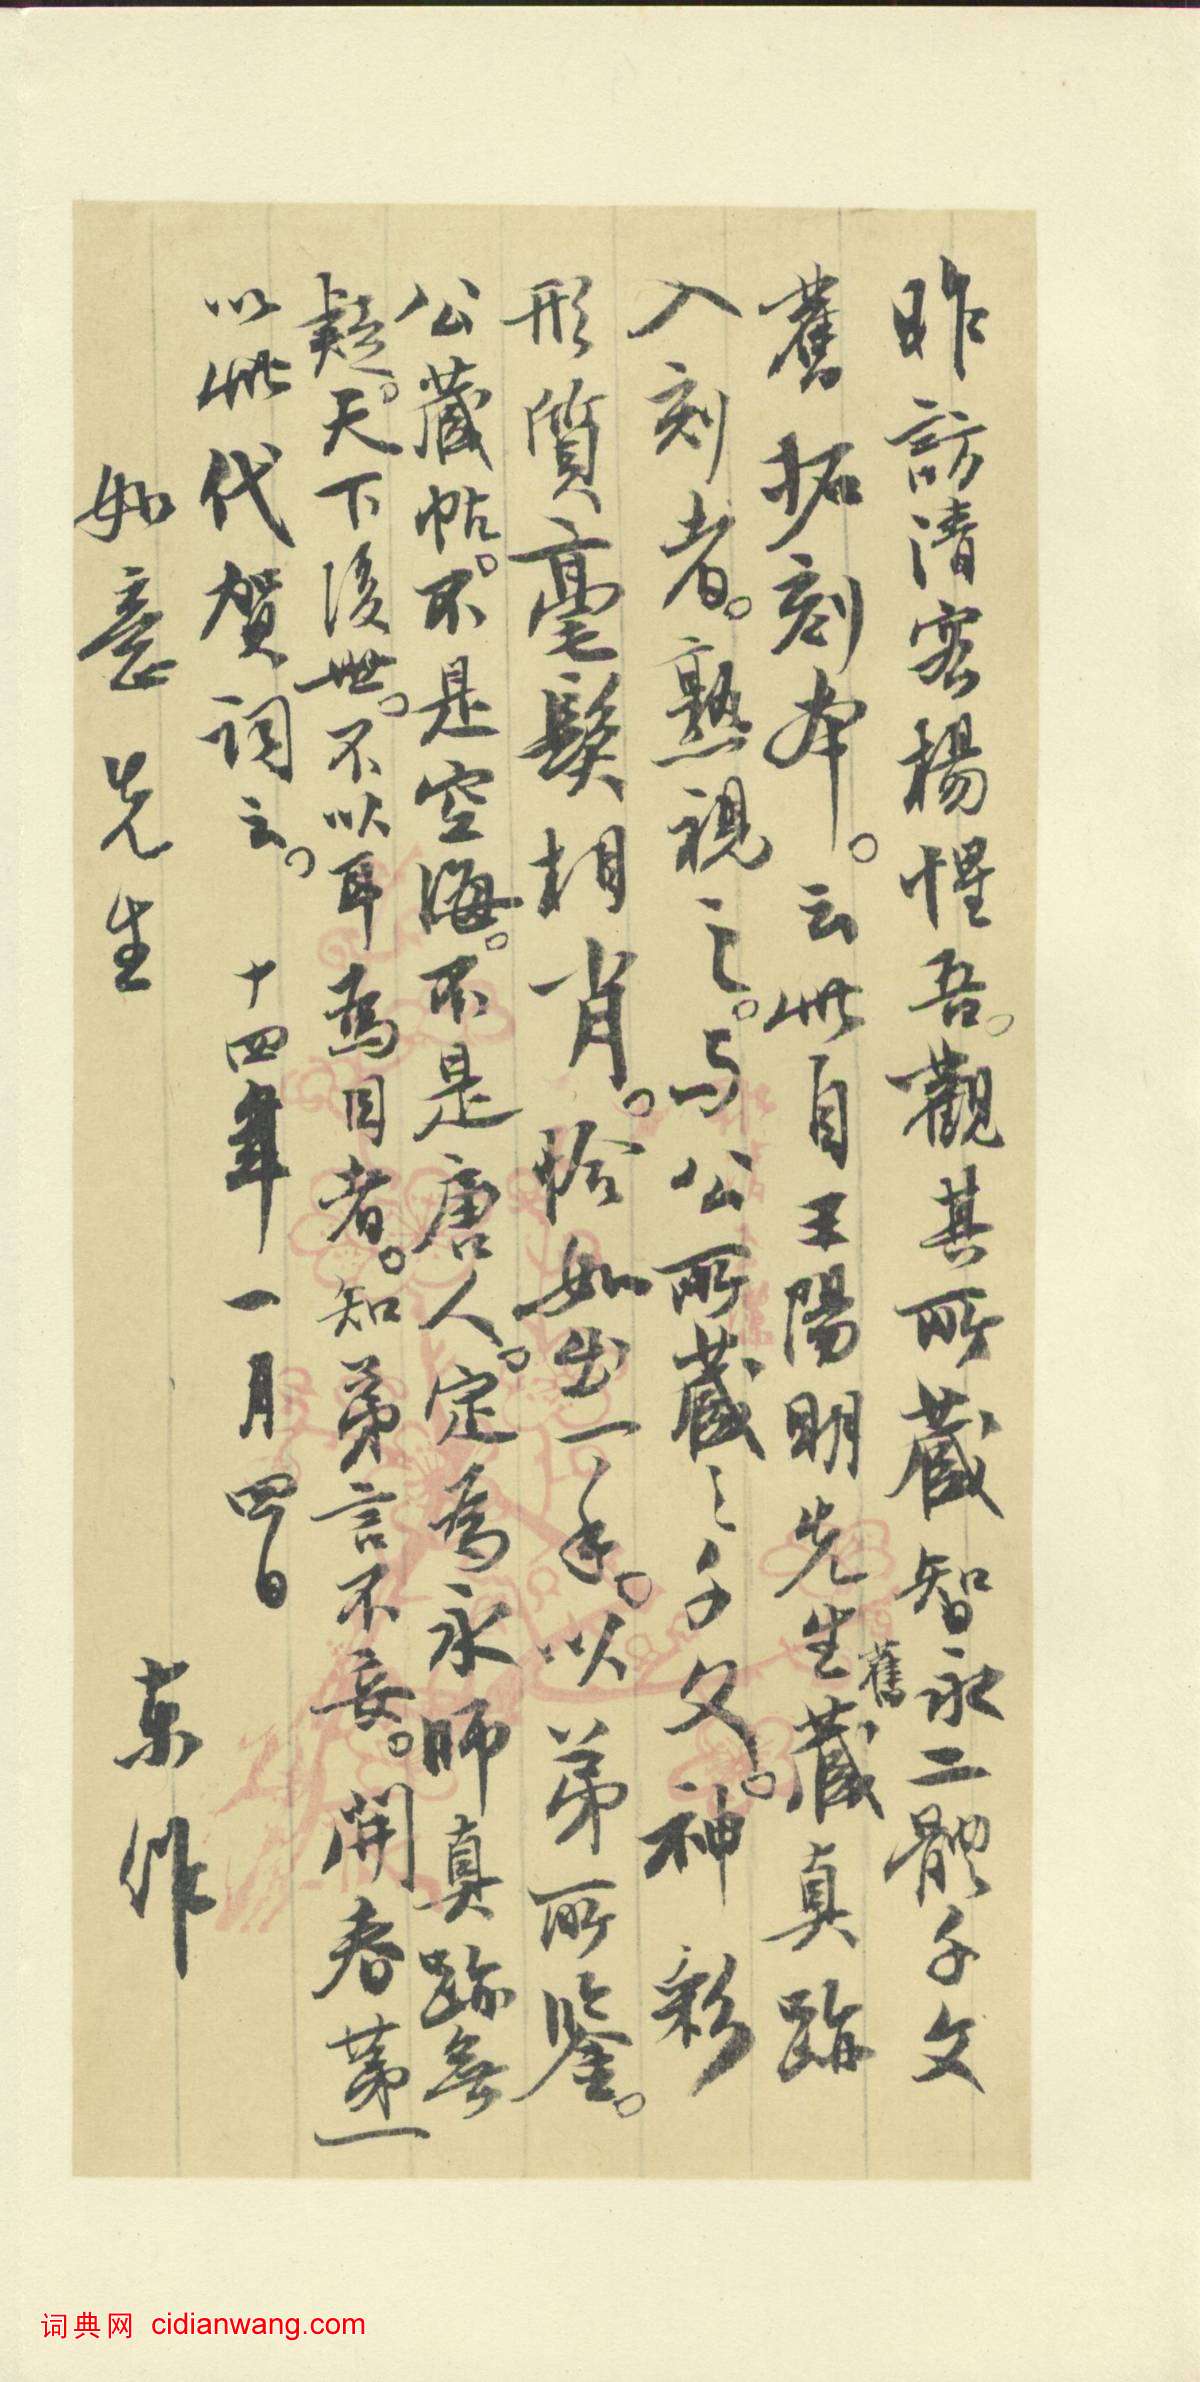 昨訪清客楊惺吾。觀其所藏智永二體千文
舊拓刻本。云此自王陽明先生舊藏真跡
入刻者。熟視之。与公所藏之千文。神彩
形質毫髮相肖。恰如出一手。以弟所鑒。
公藏帖。不是空海。不是唐人。定為永師真跡無
疑。天下後世。不以耳為目者。知弟言不妄。開春第一
以此代賀詞云。 十四年一月四日
如意先生 東作
词典网 cidianwang.com